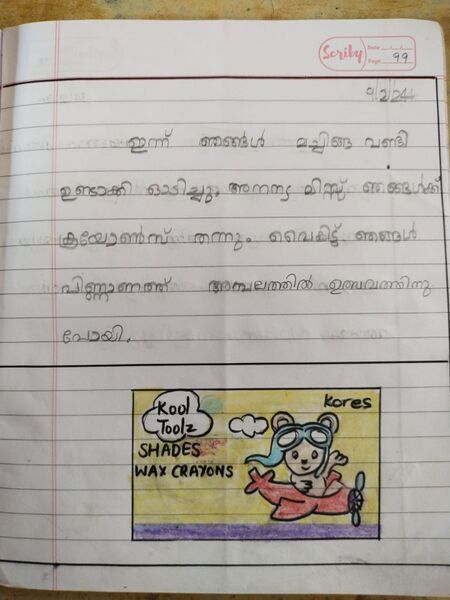 Scriby
Date
Page 99
9/2/24
ഇന്ന് ഞങ്ങൾ മച്ചിങ്ങ വണ്ടി
ഉണ്ടാക്കി ഓടിച്ചു. അനന്യ മിസ്സ് ഞങ്ങൾക്ക്
ക്രയോൺസ് തന്നു. വൈകിട്ട് ഞങ്ങൾ
പിണ്ണാണത്ത് അമ്പലത്തിൽ ഉത്സവത്തിനു
പോയി.
Kool
Toolz
kores
SHADES
WAX CRAYONS